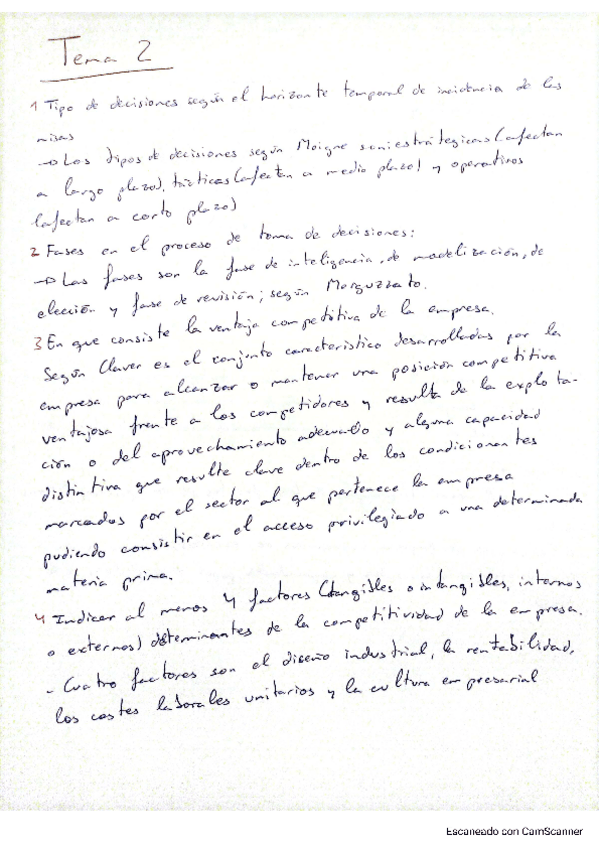 Tema 2
1 Tipo de decisiones según el horizonte temporal de incidencia de las
misas
→ Los tipos de decisiones según Moigne son estratégicas (afectan
a largo plazo), tácticas (afectan a medio plazo) y operativos
(afectan a corto plazo)
2 Fases en el proceso de toma de decisiones:
→ Las fases son la fase de inteligencia, de modelización, de
elección y fase de revisión; según Morguzzato.
3 En que consiste la ventaja competitiva de la empresa.
Según Claver es el conjunto característico desarrolladas por la
empresa para alcanzar o mantener una posición competitiva
ventajosa frente a los competidores y resulta de la explota-
ción o del aprovechamiento adecuado y alguna capacidad
distintiva que resulte clave dentro de los condicionantes
marcados por el sector al que pertenece la empresa
pudiendo consistir en el acceso privilegiado a una determinada
materia prima.
4 Indicar al menos 4 factores (tangibles o intangibles, internos
o externos) determinantes de la competitividad de la empresa.
- Cuatro factores son el diseño industrial, la rentabilidad,
los costes laborales unitarios y la cultura empresarial
Escaneado con CamScanner